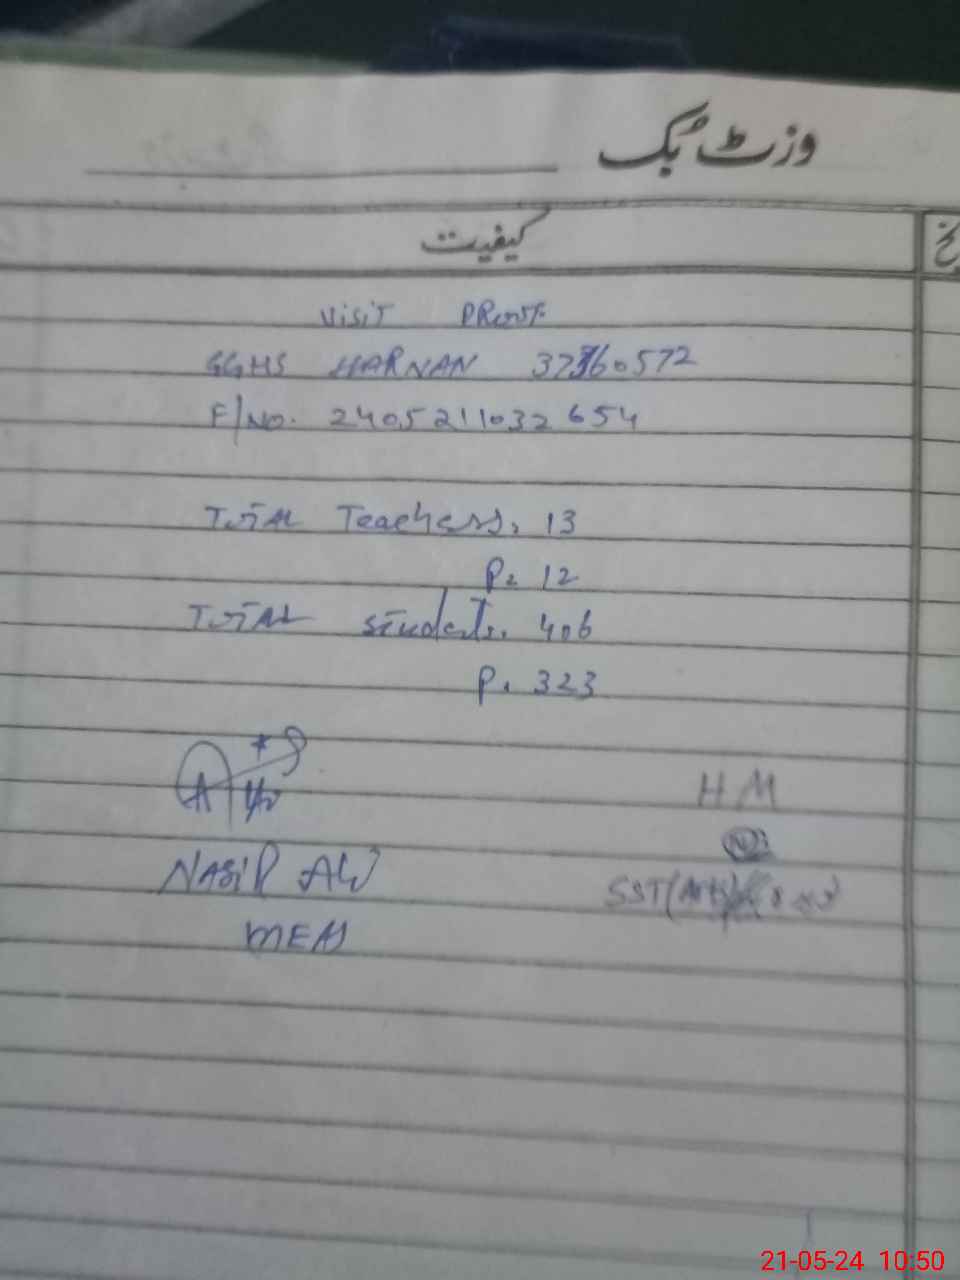 وزٹ بک
کیفیت
Visit PRoof.
GGHS HARNAN 37360572
F/No. 2405211032654
TOTAL Teachers. 13
P. 12
TOTAL students. 406
P. 323
HM
NASIR ALI
SST(Arts)
MEA
21-05-24 10:50